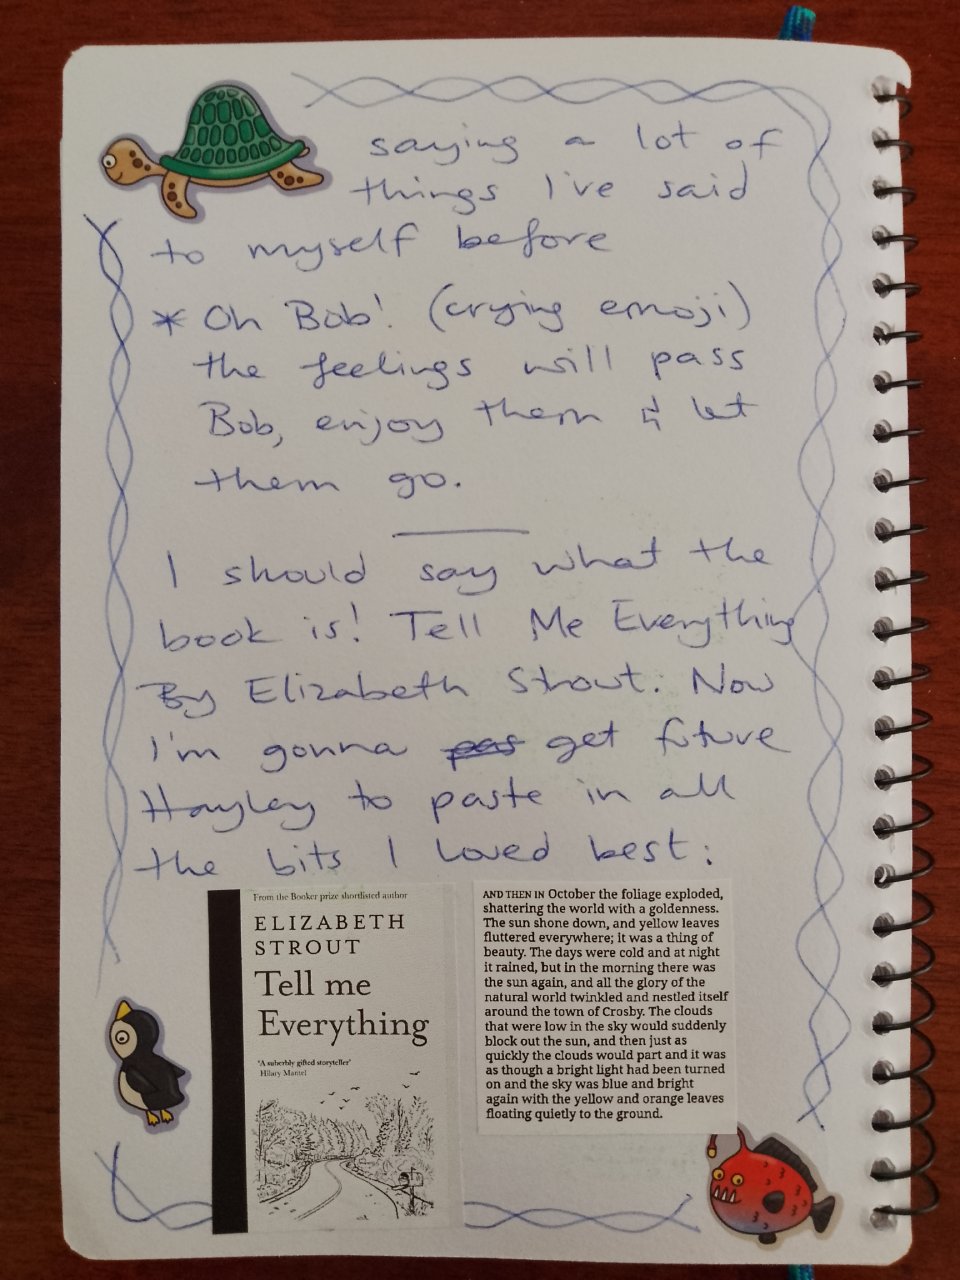 saying a lot of
things I've said
to myself before
* Oh Bob! (crying emoji)
the feelings will pass
Bob, enjoy them & let
them go.
I should say what the
book is! Tell Me Everything
By Elizabeth Strout. Now
I'm gonna pas get future
Hayley to paste in all
the bits I loved best:
From the Booker prize shortlisted author
ELIZABETH
STROUT
Tell me
Everything
'A superbly gifted storyteller'
Hilary Mantel
AND THEN IN October the foliage exploded,
shattering the world with a goldenness.
The sun shone down, and yellow leaves
fluttered everywhere; it was a thing of
beauty. The days were cold and at night
it rained, but in the morning there was
the sun again, and all the glory of the
natural world twinkled and nestled itself
around the town of Crosby. The clouds
that were low in the sky would suddenly
block out the sun, and then just as
quickly the clouds would part and it was
as though a bright light had been turned
on and the sky was blue and bright
again with the yellow and orange leaves
floating quietly to the ground.